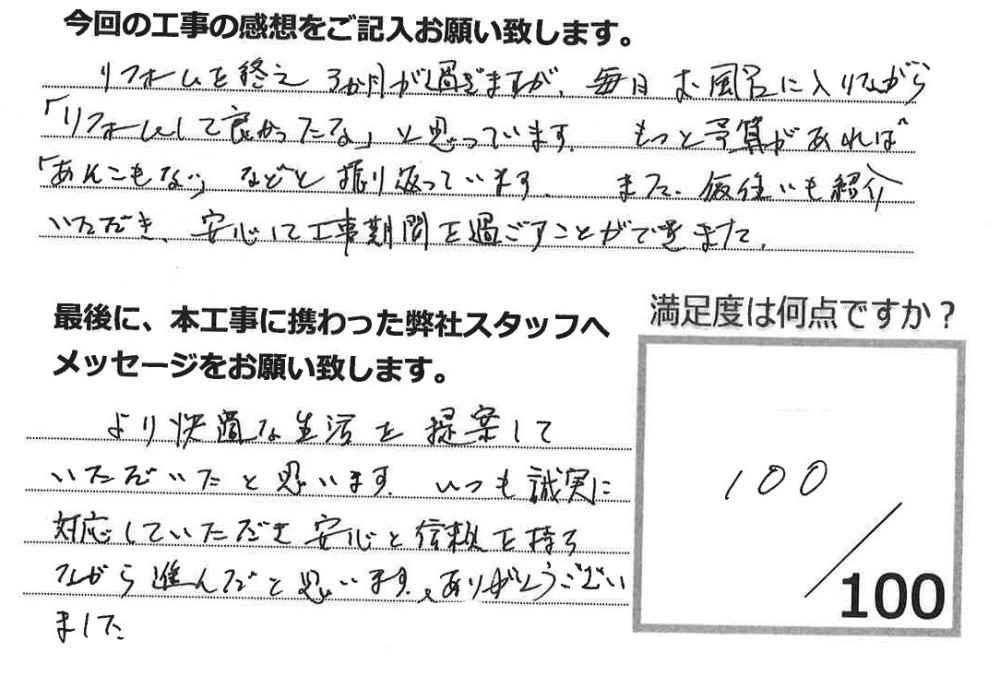 今回の工事の感想をご記入お願い致します。
リフォームを終え 3か月が過ぎますが、毎日 お風呂に入りながら
「リフォームして良かったな」と思っています。 もっと予算があれば
「あんこもな」 などと 振り返っています。 また、仮住いも紹介
いただき、安心して工事期間を過ごすことができました。
最後に、本工事に携わった弊社スタッフへ
メッセージをお願い致します。
より快適な生活を提案して
いただいたと思います。いつも誠実に
対応していただき 安心と信頼を持ち
ながら進んだと思います。ありがとうござい
ました
満足度は何点ですか？
100
/100